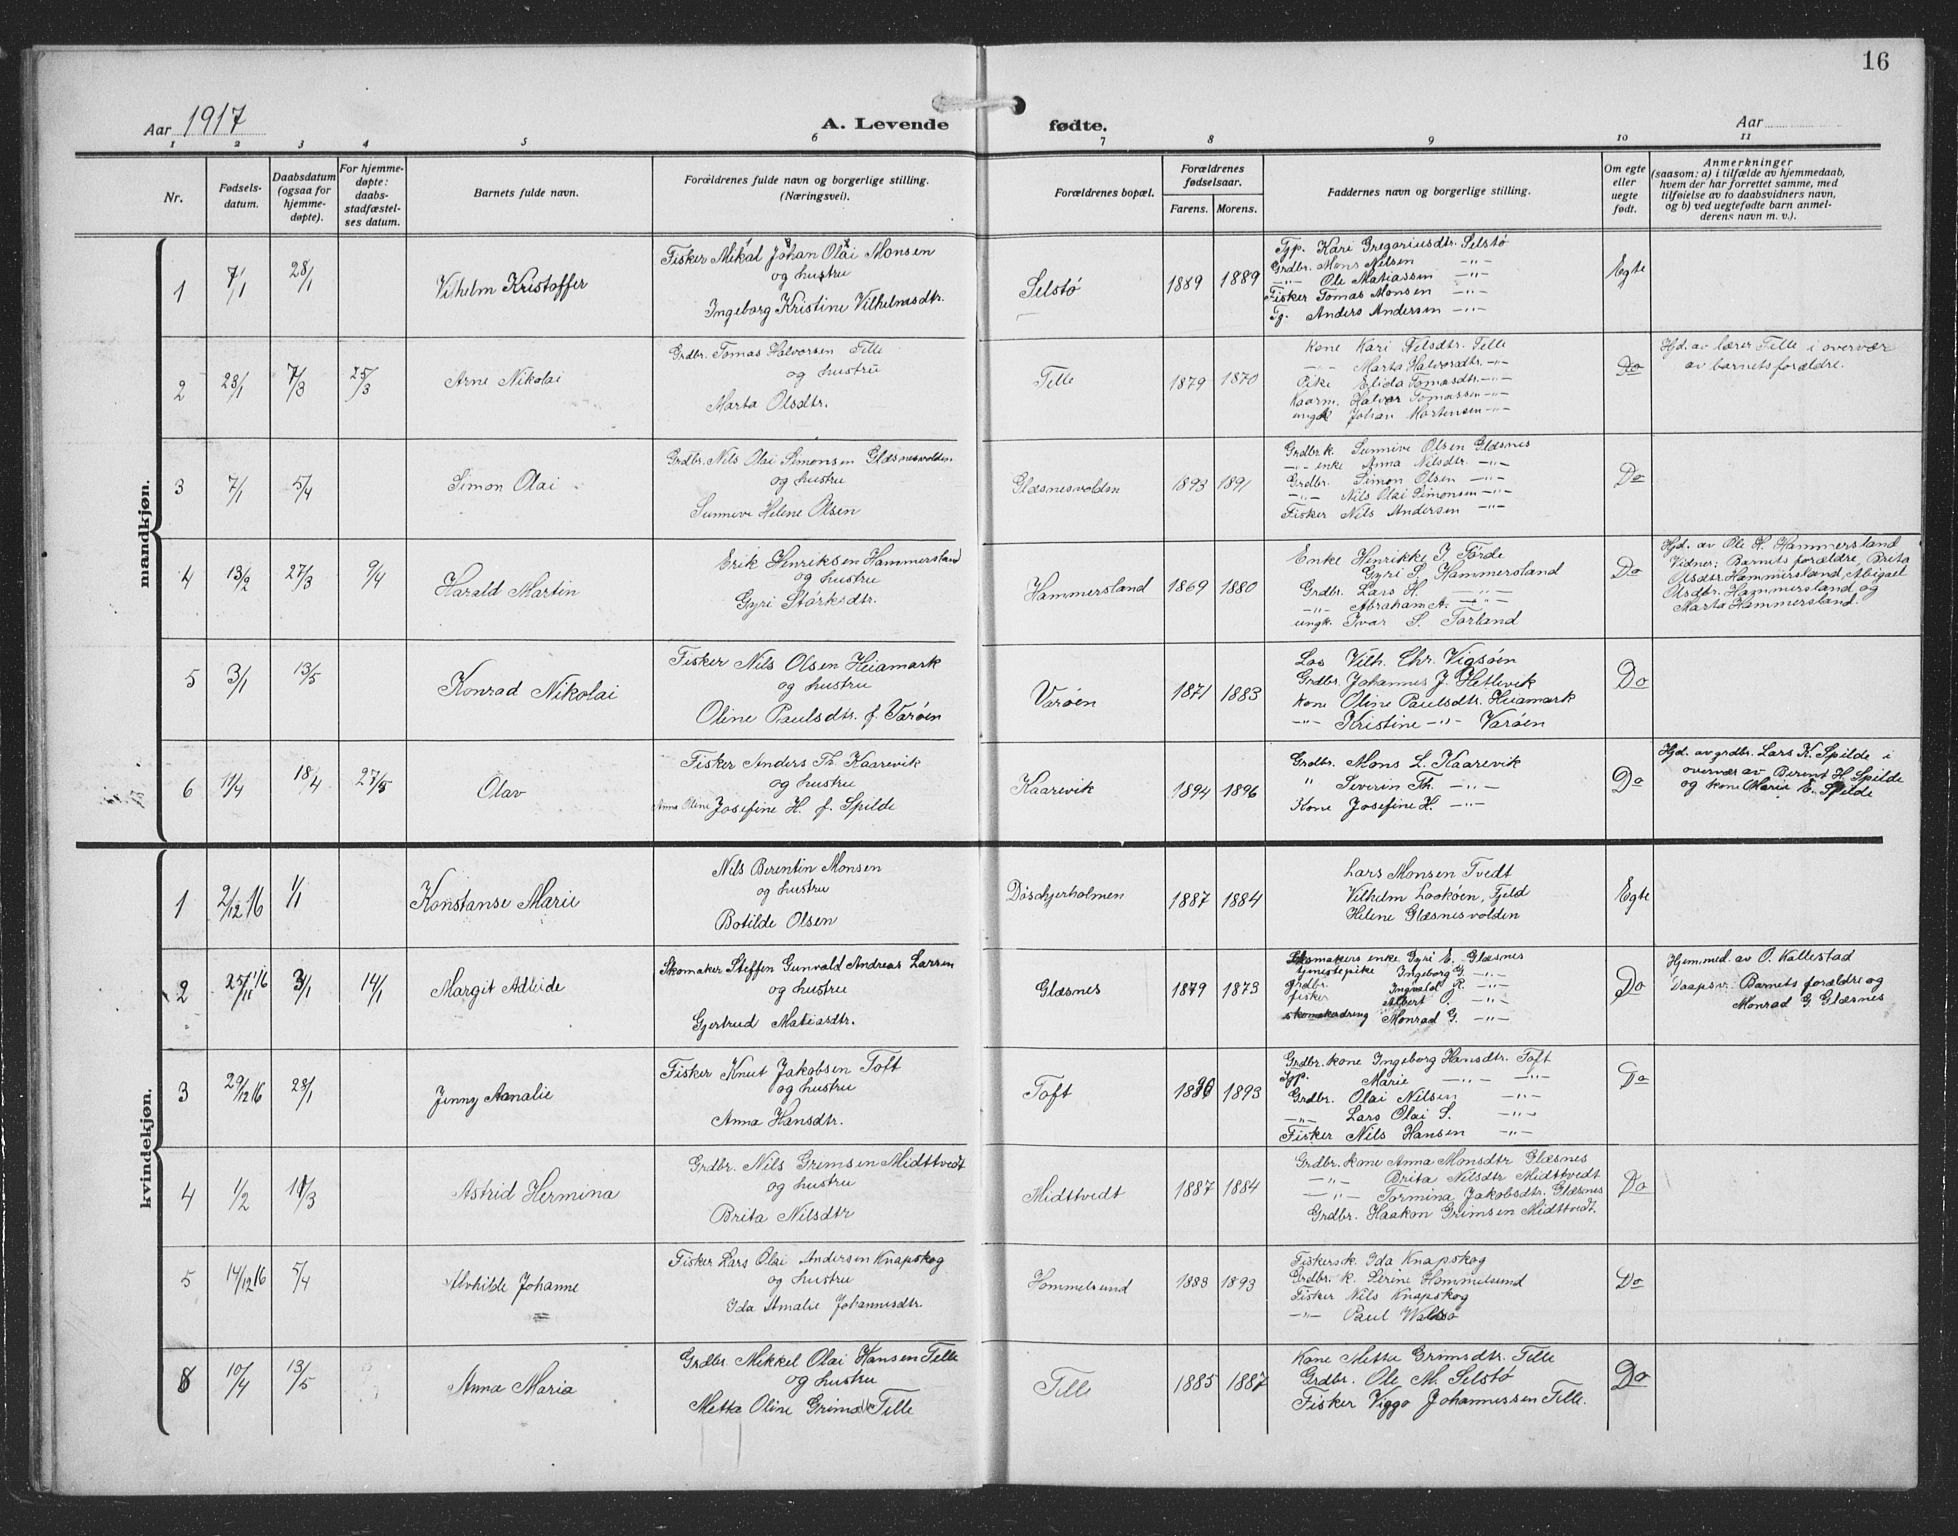 16
Aar 1917
A. Levende fødte.
Aar
1 2 3 4 5 6 7 8 9 10 11
Nr.
Fødsels-
datum.
Daabsdatum
(ogsaa for
hjemme-
døpte).
For hjemme-
døpte:
daabs-
stadfæstel-
ses datum.
Barnets fulde navn.
Forældrenes fulde navn og borgerlige stilling.
(Næringsvei).
Forældrenes bopæl.
Forældrenes
fødselsaar.
Farens. Morens.
Faddernes navn og borgerlige stilling.
Om egte
eller
uegte
født.
Anmerkninger
(saasom: a) i tilfælde av hjemmedaab,
hvem der har forrettet samme, med
tilføielse av to daabsvidners navn,
og b) ved uegtefødte barn anmel-
derens navn m. v.).
mandkjøn.
1 7/1 28/1 Vilhelm Kristoffer
Fisker Mikal Johan Olai Monsen
og hustru
Ingeborg Kristine Vilhelmsdtr.
Selstø 1889 1889
Tjp. Kari Gregoriusdtr. Selstø
Grdbr. Mons Nilsen -"-
-"- Ole Matiassen -"-
Fisker Tomas Monsen -"-
Tg. Anders Andersen -"-
Egte
2 23/1 7/3 25/3 Arne Nikolai
Grdbr. Tomas Halvorsen Telle
og hustru
Marta Olsdtr.
Telle 1879 1870
Kone Kari Nelsdtr. Telle
-"- Marta Halvorsdtr. -"-
Pike Elida Tomasdtr. -"-
Kaarm. Halvor Tomassen -"-
ungk Johan Mortensen -"-
Do
Hjd. av lærer Telle i overvær
av barnets forældre.
3 7/1 5/4 Simon Olai
Grdbr. Nils Olai Simonsen Glæsnesvolden
og hustru
Sunneve Helene Olsen
Glæsnesvolden 1893 1891
Grdbr.k. Sunnive Olsen Glæsnes
-"- enke Anna Nilsdtr. -"-
Grdbr. Simon Olsen -"-
-"- Nils Olai Simonsen -"-
Fisker Nils Andersen -"-
Do
4 13/2 27/3 9/4 Harald Martin
Erik Henriksen Hammersland
og hustru
Gyri Størksdtr.
Hammersland 1869 1880
Enke Henrikke J Førde
Gyri S. Hammersland
Grdbr. Lars H. -"-
-"- Abraham A. -"-
ungk. Ivar S. Tørland
Do
Hjd. av Ole H. Hammersland
Vidner: Barnets forældre, Brita
Olsdtr. Hammersland, Abigael
Olsdtr. Hammersland og
Marta Hammersland.
5 3/1 13/5 Konrad Nikolai
Fisker Nils Olsen Heiamark
og hustru
Oline Paulsdtr. f. Varøen
Varøen 1871 1883
Los Vilh. Chr. Vigsøen
Grdbr. Johannes J. Hetlevik
kone Oline Paulsdtr. Heiamark
-"- Kristine -"- Varøen
Do
6 11/4 18/4 27/5 Olav
Fisker Anders Th. Kaarevik
og hustru
Anna Oline Josefine H. f. Spilde
Kaarevik 1894 1896
Grdbr. Mons L. Kaarevik
" Severin Th. -"-
Kone Josefine H. -"-
Do
Hjd. av grdbr. Lars K. Spilde i
overvær av Berent H. Spilde
og kone Marie E. Spilde
kvindekjøn.
1 2/12 16 1/1 Konstanse Marie
Nils Berentin Monsen
og hustru
Botilde Olsen
Døskjerholmen 1887 1884
Lars Monsen Tvedt
Vilhelm Lookøen, Tjeld
Helene Glæsnesvolden
Egte
2 25/11 16 3/1 14/1 Margit Adleide
Skomaker Steffen Gunvald Andreas Larsen
og hustru
Gjertrud Matiasdtr.
Glæsnes 1879 1873
Skomakers enke Gyri E. Glæsnes
tjenestepike Ingeborg G. -"-
grdbr. Ingvald R. -"-
fisker Albert O. -"-
skomakerdreng Monrad G. -"-
Do
Hjemmed. av O. Kallestad
Daapsv: Barnets forældre og
Monrad G Glæsnes
3 29/12 16 28/1 Jenny Amalie
Fisker Knut Jakobsen Toft
og hustru
Anna Hansdtr.
Toft 1893
Grdbr. kone Ingeborg Hansdtr. Toft
Tjp. Marie -"- -"-
Grdbr. Olai Nilsen -"-
-"- Lars Olai S. -"-
Fisker Nils Hansen -"-
Do
4 1/2 11/3 Astrid Hermina
Grdbr. Nils Grimsen Midttvedt
og hustru
Brita Nilsdtr
Midttvedt 1887 1884
Grdbr. kone Anna Monsdtr Glæsnes
-"- Brita Nilsdtr Midttvedt
-"- Tormina Jakobsdtr. Glæsnes
Grdbr. Haakon Grimsen Midttvedt.
Do
5 14/12 16 5/4 Alvhilde Johanne
Fisker Lars Olai Andersen Knapskog
og hustru
Ida Amalie Johannesdtr.
Hommelsund 1888 1893
Fiskersk. Ida Knapskog
Grdbr. k. Serine Hommelsund
Fisker Nils Knapskog
-"- Paul Valdsø
Do
6 10/4 13/5 Anna Maria
Grdbr. Mikkel Olai Hansen Telle
og hustru
Metta Oline Grims Telle
Telle 1885 1887
Kone Metta Grimsdtr. Telle
Grdbr. Ole M. Selstø
Fisker Viggo Johannessen Telle.
Do